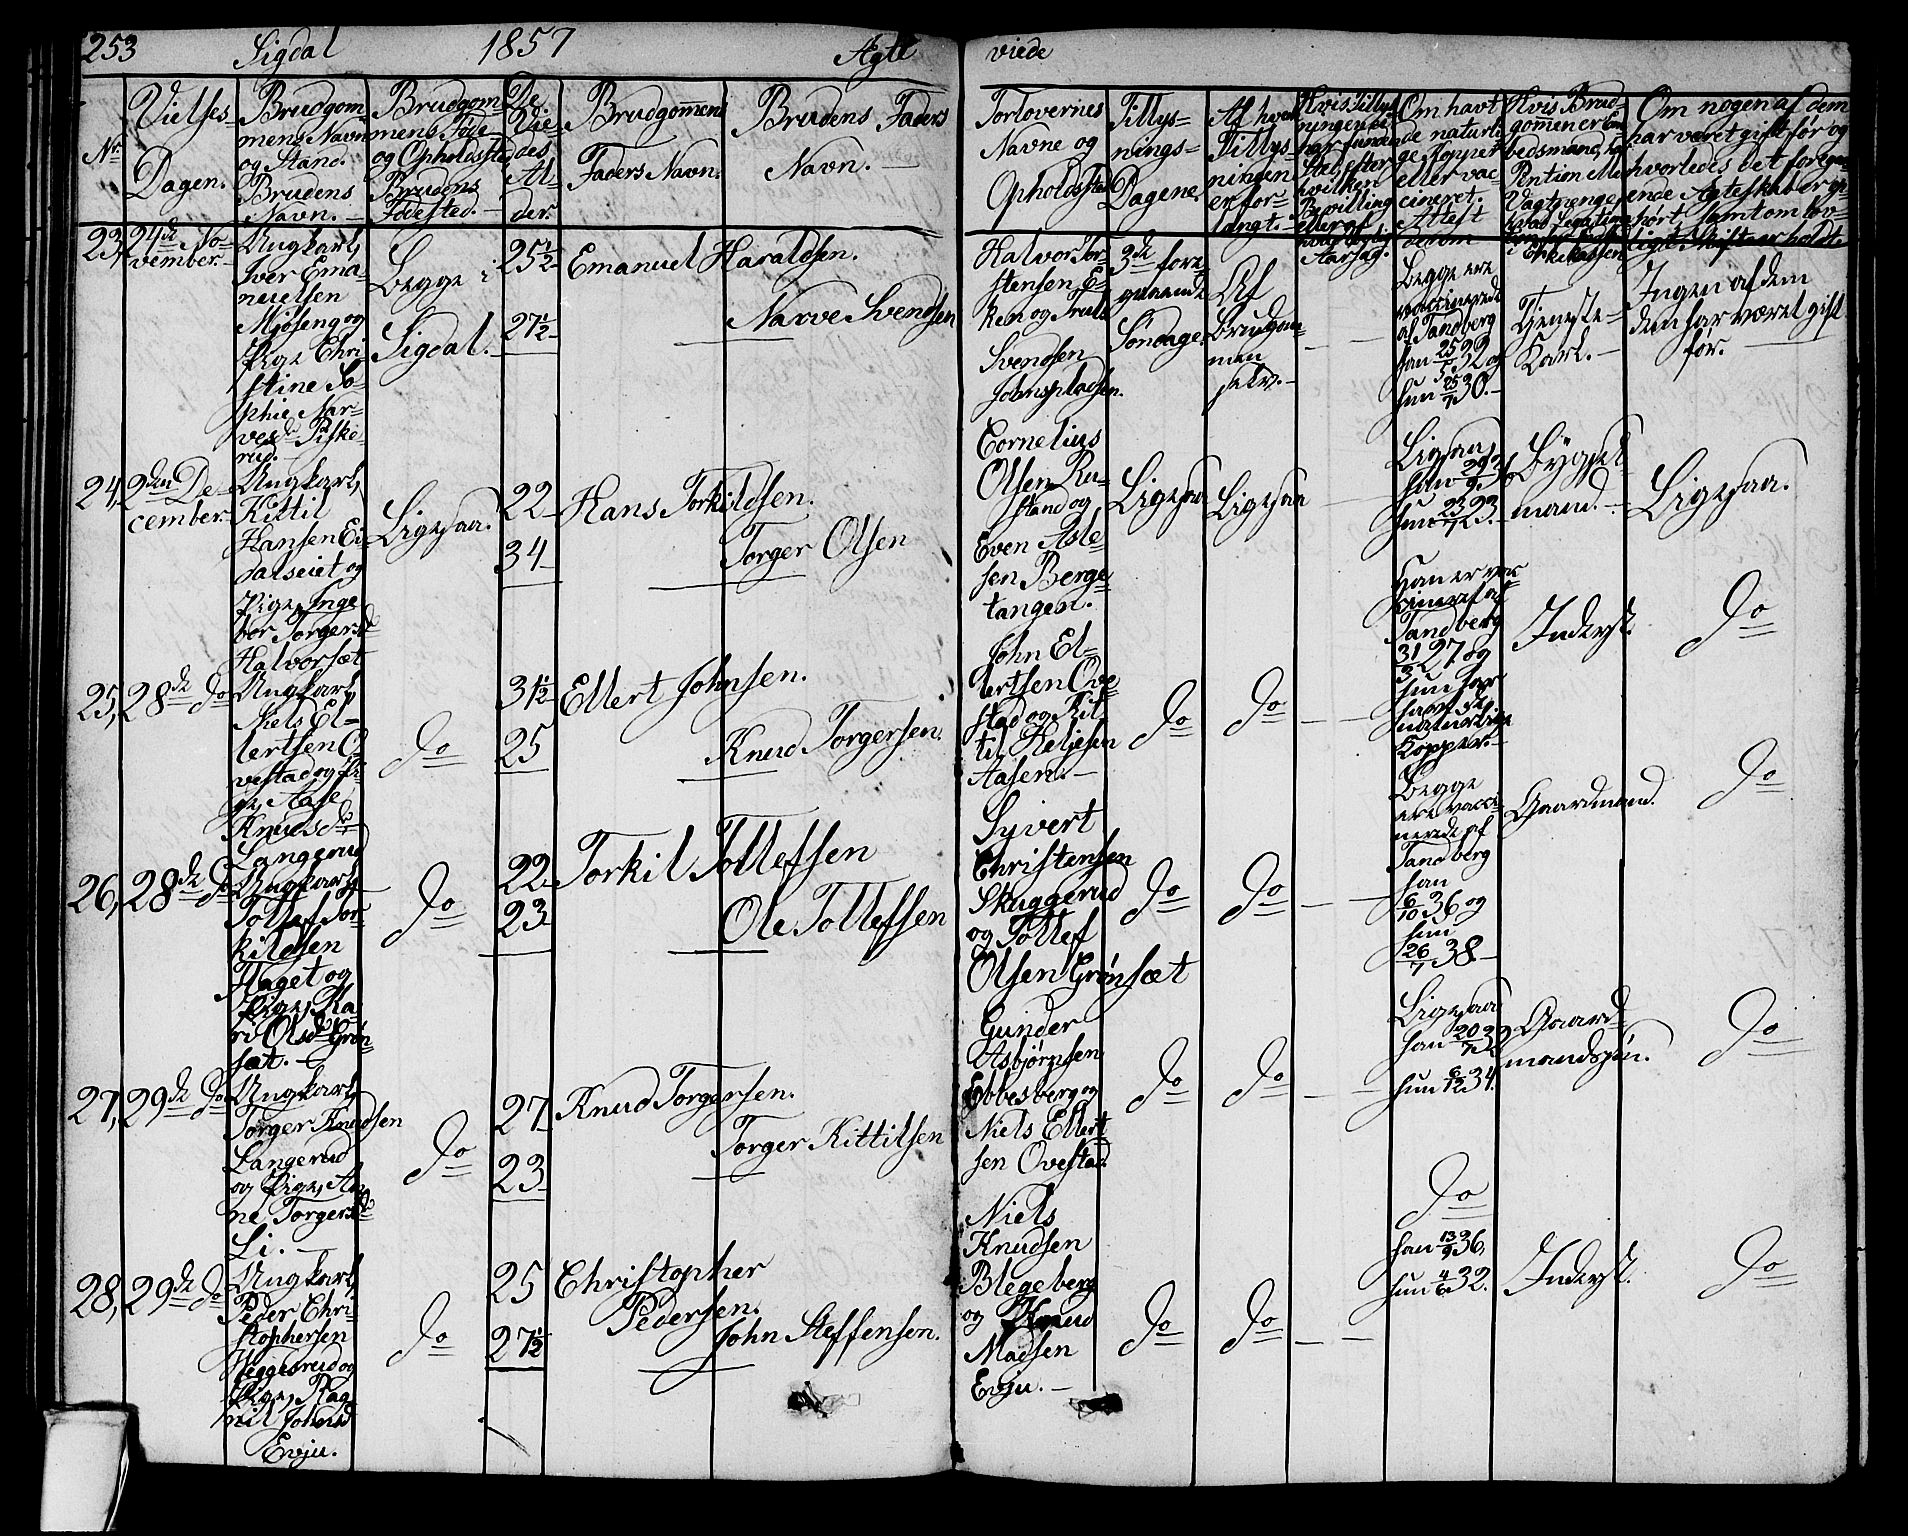 253 Sigdal 1857 Ægte viede
Nr
Vielses-
Dagen.
Brudgom
mens Navn
og Stand.
Brudens
Navn.
Brudgom
mens Føde
og Opholdssted
Brudens
Fødested.
De
Vie-
des
Al-
der.
Brudgomens
Faders Navn.
Brudens Faders
Navn.
Forlovernes
Navne og
Opholdssted
Tillys-
nings-
Dagene.
Af hvem
Tillys-
ningen
er for-
langt.
Om havt
de naturli
ge Kopper
eller vac-
cineret.
Attest
derom
Om nogen af dem
har været gift før og
hvorledes det foregaa
ende Ægteskab er op-
hørt samt om lov-
ligt Skifte er holdt.
23, 24de No-
vember.
Ungkarl,
Iver Ema-
nuelsen
Mjøseng og
Pige Chri-
stine So-
phie Nar-
vesdr Piske-
rud.
Begge i
Sigdal.
25½
27½
Emanuel Haraldsen.
Narve Svendsen
Halvor Tor-
stensen, E-
ken og Truls
Svendsen
Johnspladsen.
3de fore-
gaaende
Søndage.
Af
Brudgom-
men
selv.
Begge ere
vaccinerede
af Tandberg
han 25/5 32 og
hun 25/7 30.
Tjeneste-
Karl.
Ingen af dem
har været gift
før.
24, 2den De-
cember.
Ungkarl,
Kittil
Hansen Ei-
dalseiet og
Pige, Inge
bor Torgersdr
Halvorsæt
Ligesaa.
22
34
Hans Torkildsen.
Torger Olsen
Cornelius
Olsen Ru-
stand og
Even Asle-
sen Berge-
tangen.
Ligesaa
Ligesaa
Ligesaa
hun 23/7 23.
Bygsel-
mand.
Ligesaa.
25, 28de Do
Ungkarl,
Niels El-
lertsen O-
vestad og Pi-
ge, Aase
Knudsdr
Langerud
Do
31½
25
Ellert Johnsen.
Knud Torgersen.
John El-
lertsen Ove-
stad og Kit-
til Heljesen
Aasen.
Do
Do
Han er vac
cineret af
Tandberg
31/3 27 og
hun har
havt de
naturlige
Kopper.
Inderst.
Do
26, 28de Do
Ungkarl,
Tollef Tor-
kildsen
Haget og
Pige, Ka-
ri Olsdr Grøn-
sæt.
Do
22
23
Torkil Tollefsen
Ole Tollefsen
Syvert
Christensen
Skuggerud
og Tollef
Olsen Grønsæt
Do
Do
Begge
ere vacci-
nerede af
Tandberg
han
6/10 36 og
hun
26/7 38
Gaardmand.
Do
27, 29de Do
Ungkarl,
Torger Knudsen
Langerud
og Pige, An-
ne Torgersdr
Li.
Do
27
23
Knud Torgersen.
Torger Kittilsen
Gunder
Asbjørnsen
Ebbesberg og
Niels Ellert-
sen Ovestad.
Do
Do
Ligesaa
han 20/7 32
hun 6/12 34.
Gaard-
mandssøn.
Do
28, 29de Do
Ungkarl,
Peder Chri-
stophersen
Heggerud og
Pige, Rag-
nil Johnsdr
Evju.
Do
25
27½
Christopher
Pedersen.
John Steffensen.
Niels
Knudsen
Blegeberg
og Knud
Madsen
Evju.
Do
Do
Do
han 13/9 36,
hun 4/6 32.
Inderst.
Do